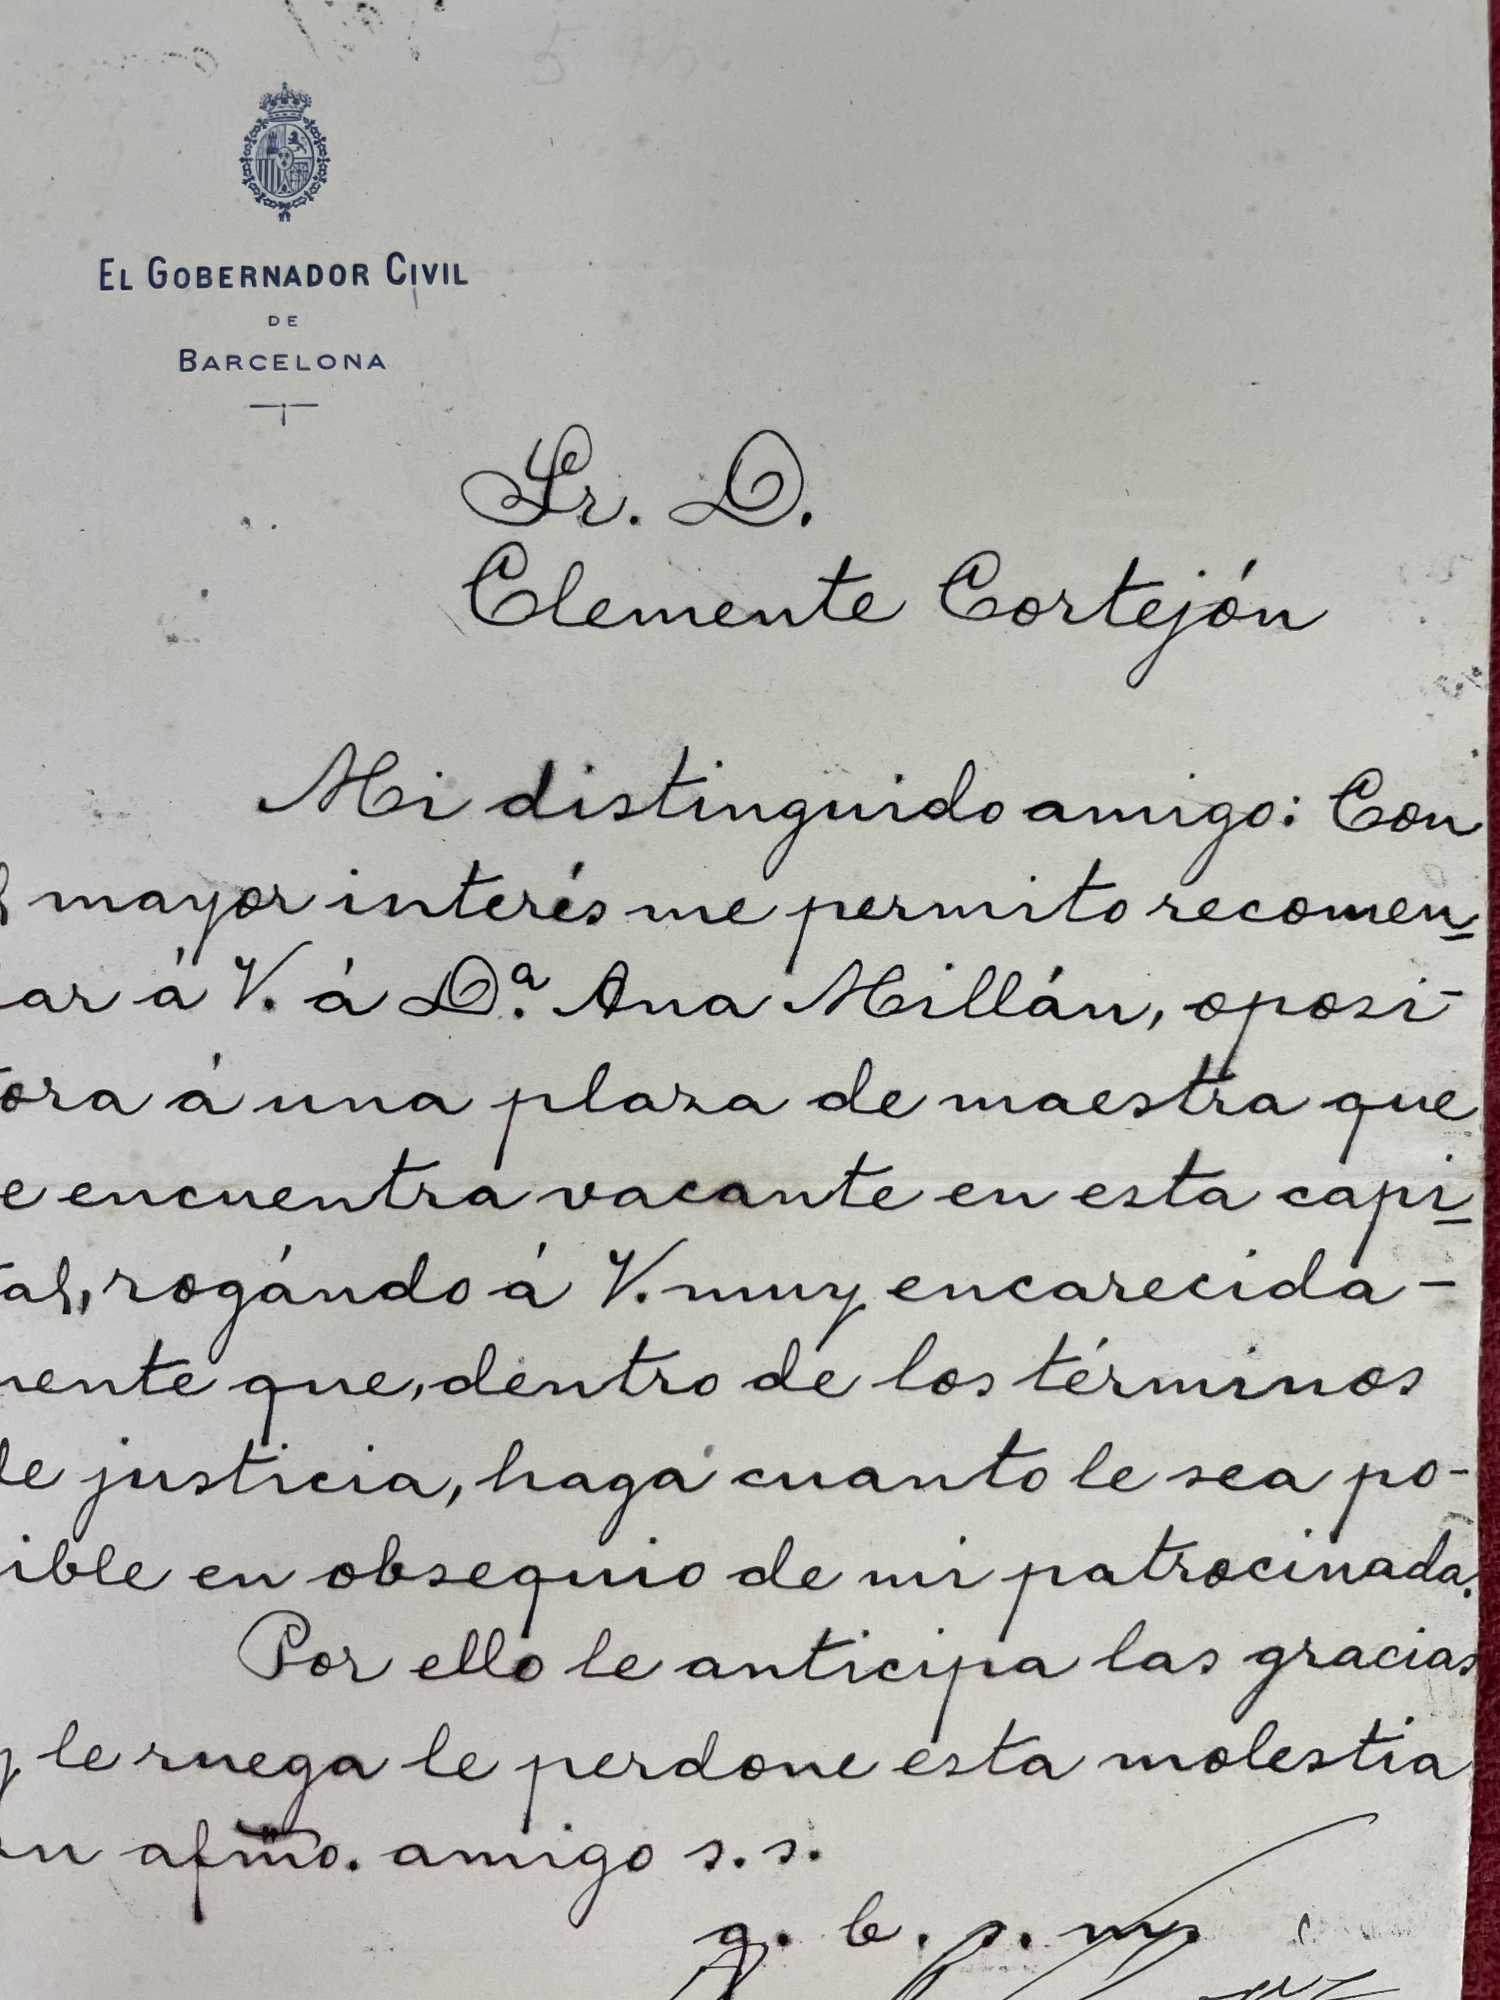 EL GOBERNADOR CIVIL
DE
BARCELONA
Sr. D.
Clemente Cortejón
Mi distinguido amigo: Con
mayor interés me permito recomen-
ar á V. á Dª. Ana Millán, oposi-
tora á una plaza de maestra que
e encuentra vacante en esta capi-
tal, rogándo á V. muy encarecida-
mente que, dentro de los términos
de justicia, haga cuanto le sea po-
ible en obsequio de mi patrocinada.
Por ello le anticipa las gracias
y le ruega le perdone esta molestia
su afmo. amigo s. s.
q. b. s. m.